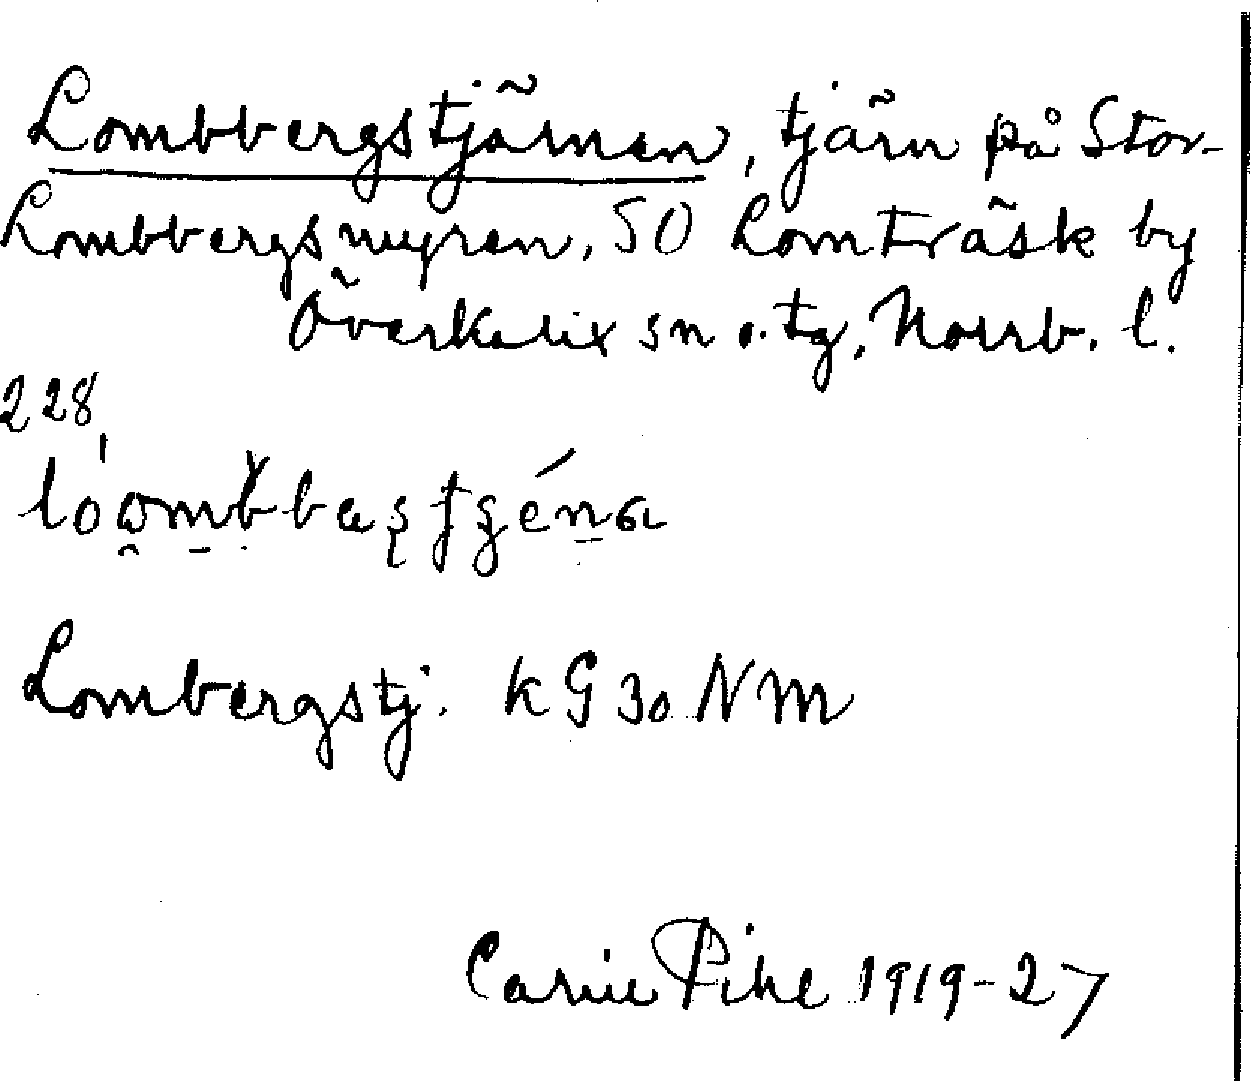 Lombbergstjärnen, tjärn på Stor-
Lombbergsmyren, SO Lomträsk by
Överkalix sn o. tg, Norrb. l.
228
Lombergstj. kG 30 NM
Carin Pihl 1919-27